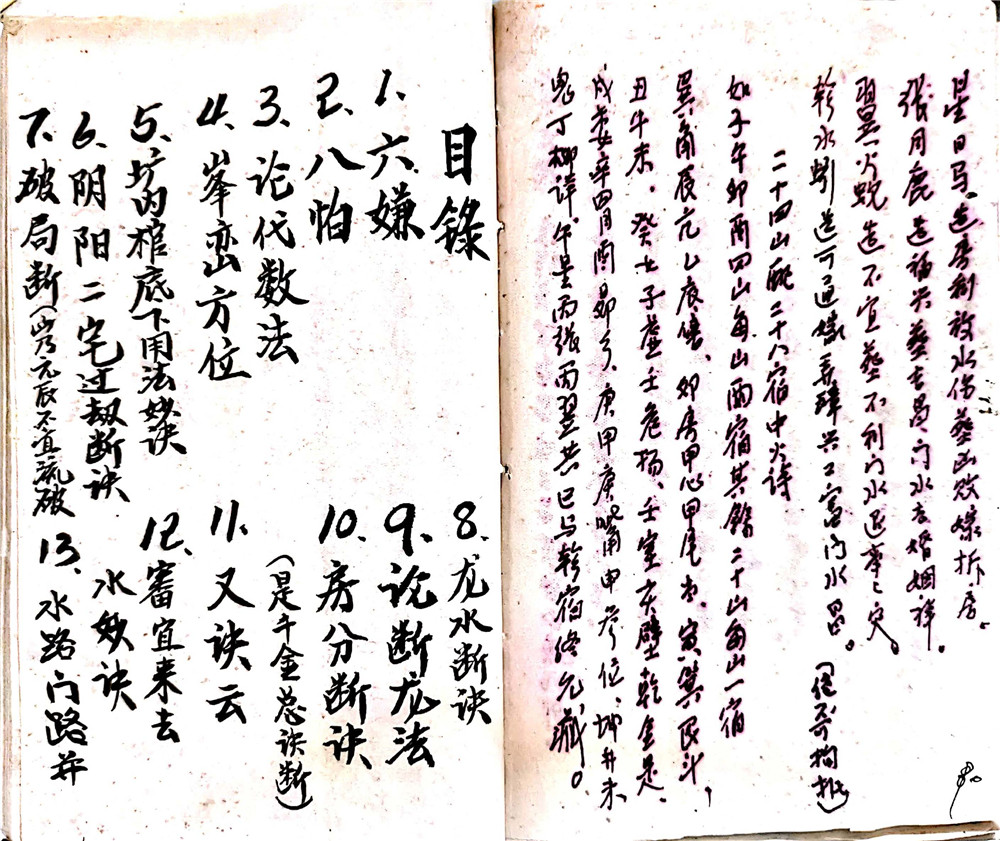 星日马。造房割放水伤葬凶败嫁拆房。
张月鹿造福兴葬吉昌门水吉婚姻祥。
翼火蛇造不宜葬不利门水退事定火。
轸水蚓造可通嫁弄璋共工富门水昌。
二十四山配二十八宿中火诗
如子午卯酉四山每山两宿其馀二十山每山一宿
巽角辰亢乙底 卯房甲心甲尾 寅箕艮斗，
丑牛未。癸女子虚壬危 、壬室亥壁乾奎是。
戌娄辛 胃 昴 、庚 庚觜申参位、坤井未
鬼丁柳 午星丙张丙翌共巳与轸宿终 藏。
目錄
1. 六嫌
2、八怕
3、论代数法
4、峯峦方位
5、坟内棺底下用法妙诀
6、阴阳二宅过劫断诀
7、破局断（ 元辰不宜流破
8、龙水断诀
9、说断龙法
10、房分断诀
（是千金总诀断）
11、又诀云
12、審宜来去
水妙诀
13、水路门路并